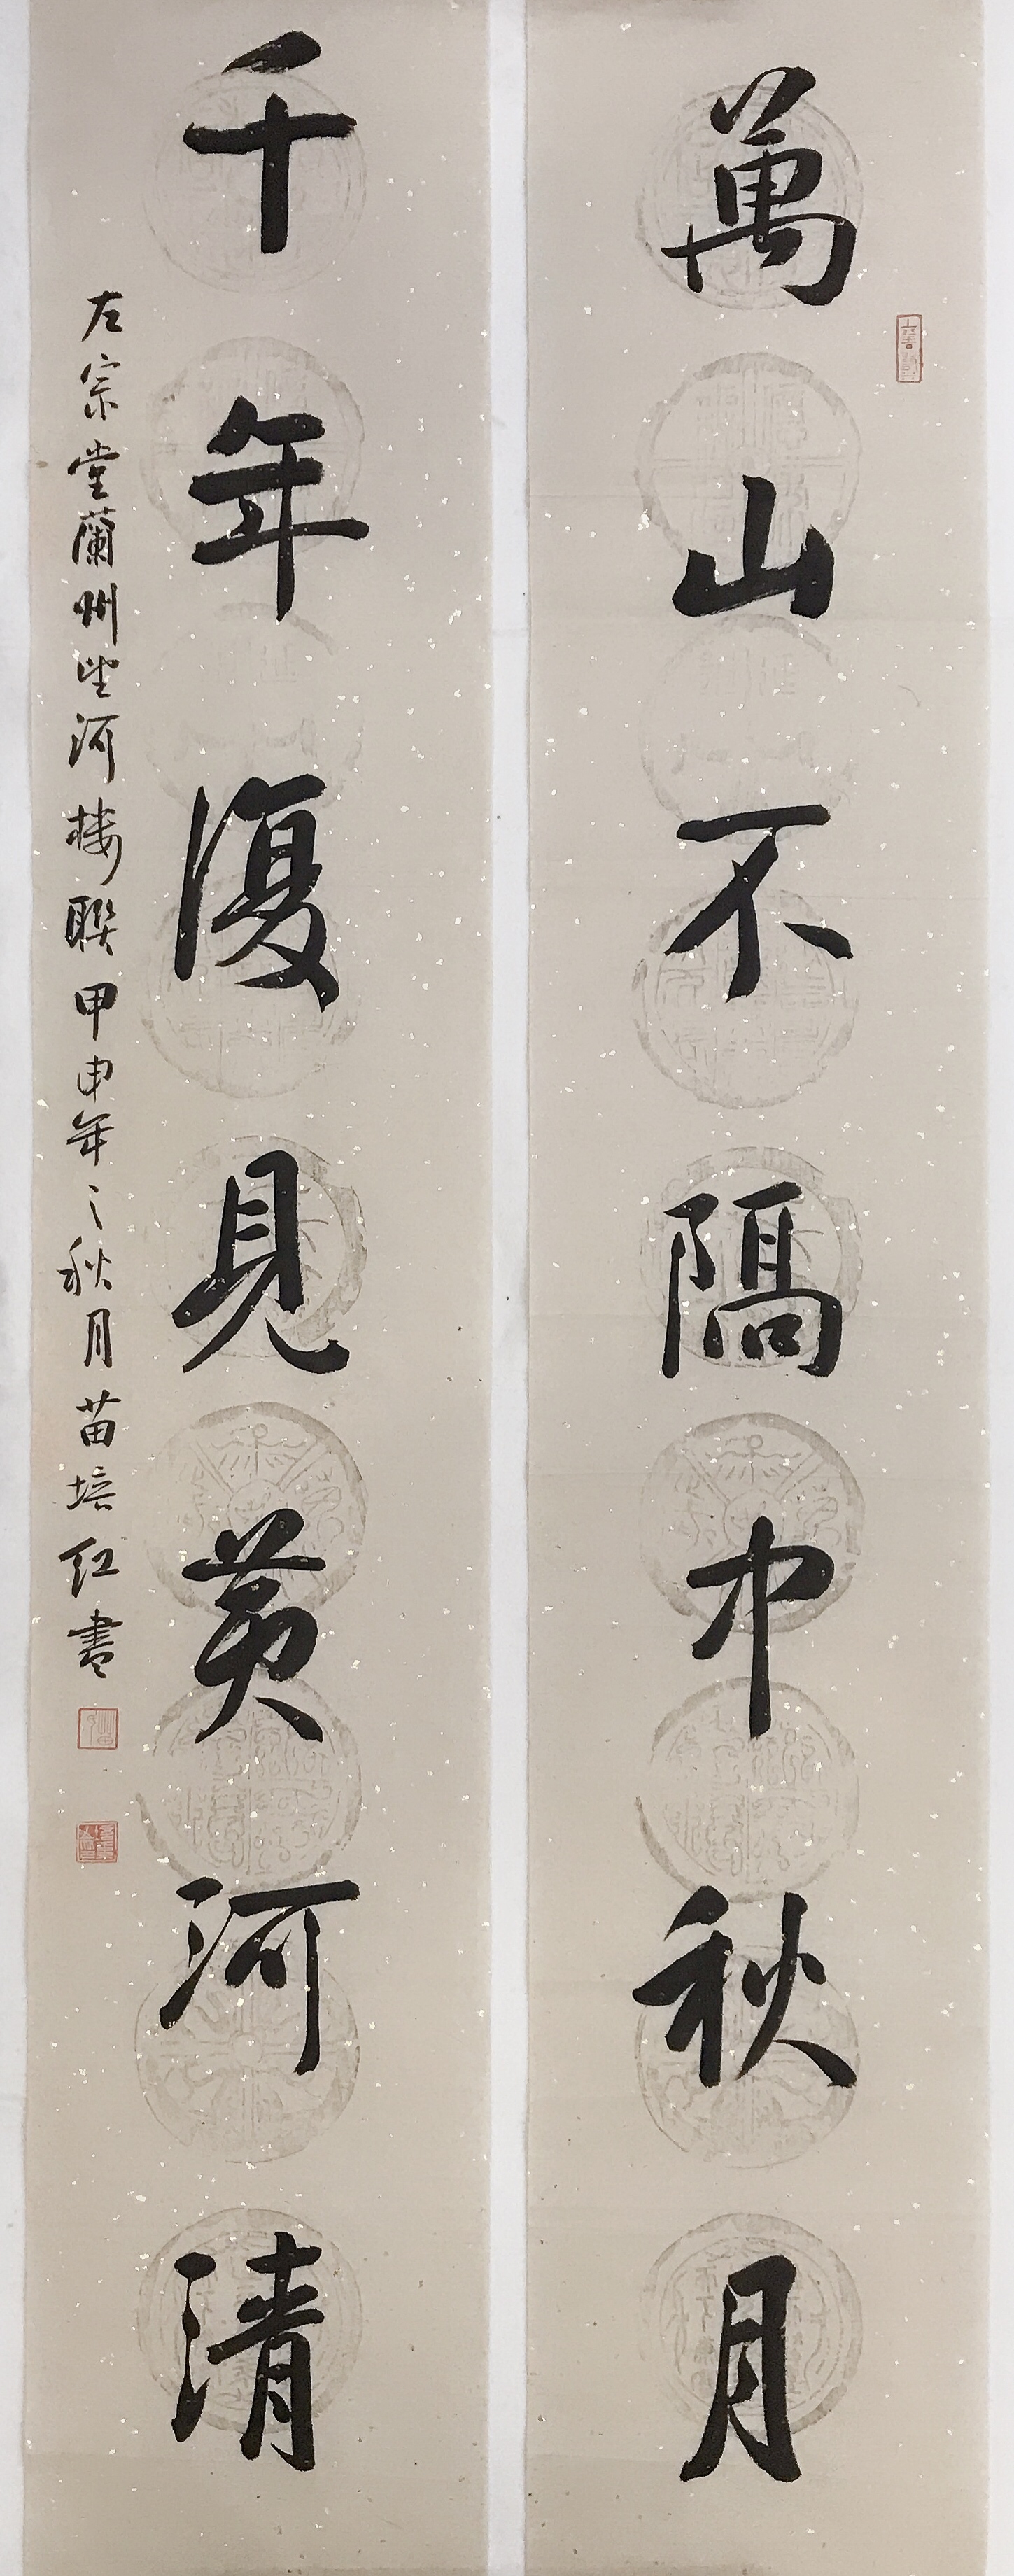 萬山不隔中秋月
千年復見黃河清
左宗堂蘭州望河楼聯甲申年之秋月苗培红書